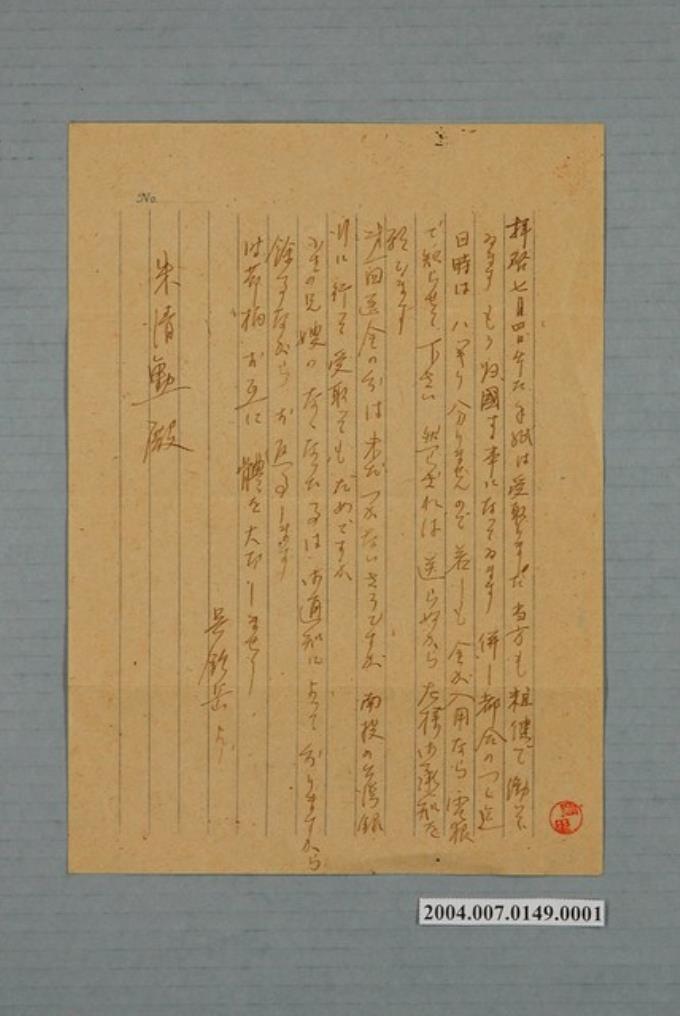 No.
拝啓七月四日付た手紙は受取りました 当方も粗健で働いて
ゐます もう帰國する事になってゐます 併し都合のつく迄
日時は ハッキリ分りませんので 若しも 金が入用なら 電報
で知らせて下さい 然らざれば 送らぬから 左様御承知を
願ひます
送金の分は未だつかないさうですが 南投の台湾銀
行に行って受取ってもだめですか
兄嫂のなくなった事は御通知によって分りますから
餘事ながら お返事します
時節柄 お互に 體を大切にしませう
呉欽岳より
朱清勲殿
2004.007.0149.0001